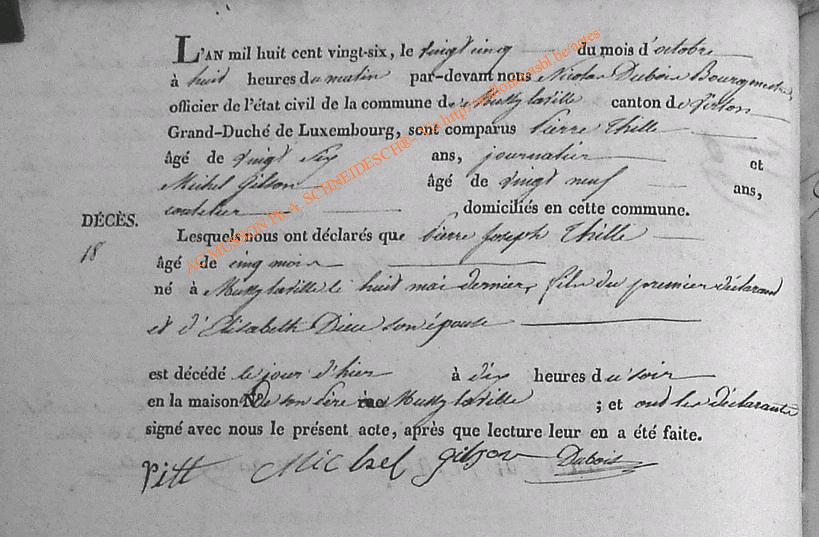 L'AN mil huit cent vingt-six, le vingt cinq du mois d'octobre
à huit heures du matin par-devant nous Nicolas Dubois Bourgmestre,
officier de l'état civil de la commune de Mussy la ville canton de Virton
Grand-Duché de Luxembourg, sont comparus Pierre Thille
âgé de vingt six ans, journalier et
Michel Gilson âgé de vingt neuf ans,
coutelier domiciliés en cette commune.
DÉCÈS.
18
Lesquels nous ont déclarés que Pierre Joseph Thille
âgé de cinq mois
né à Mussy la ville le huit mai dernier, fils du premier déclarant
et d'Elisabeth Dieu son épouse
est décédé le jour d'hier à dix heures du soir
en la maison N° de son père rue Mussy la ville ; et ont les déclarants
signé avec nous le présent acte, après que lecture leur en a été faite.
Michel gilson Dubois
SCHNEIDESCH®